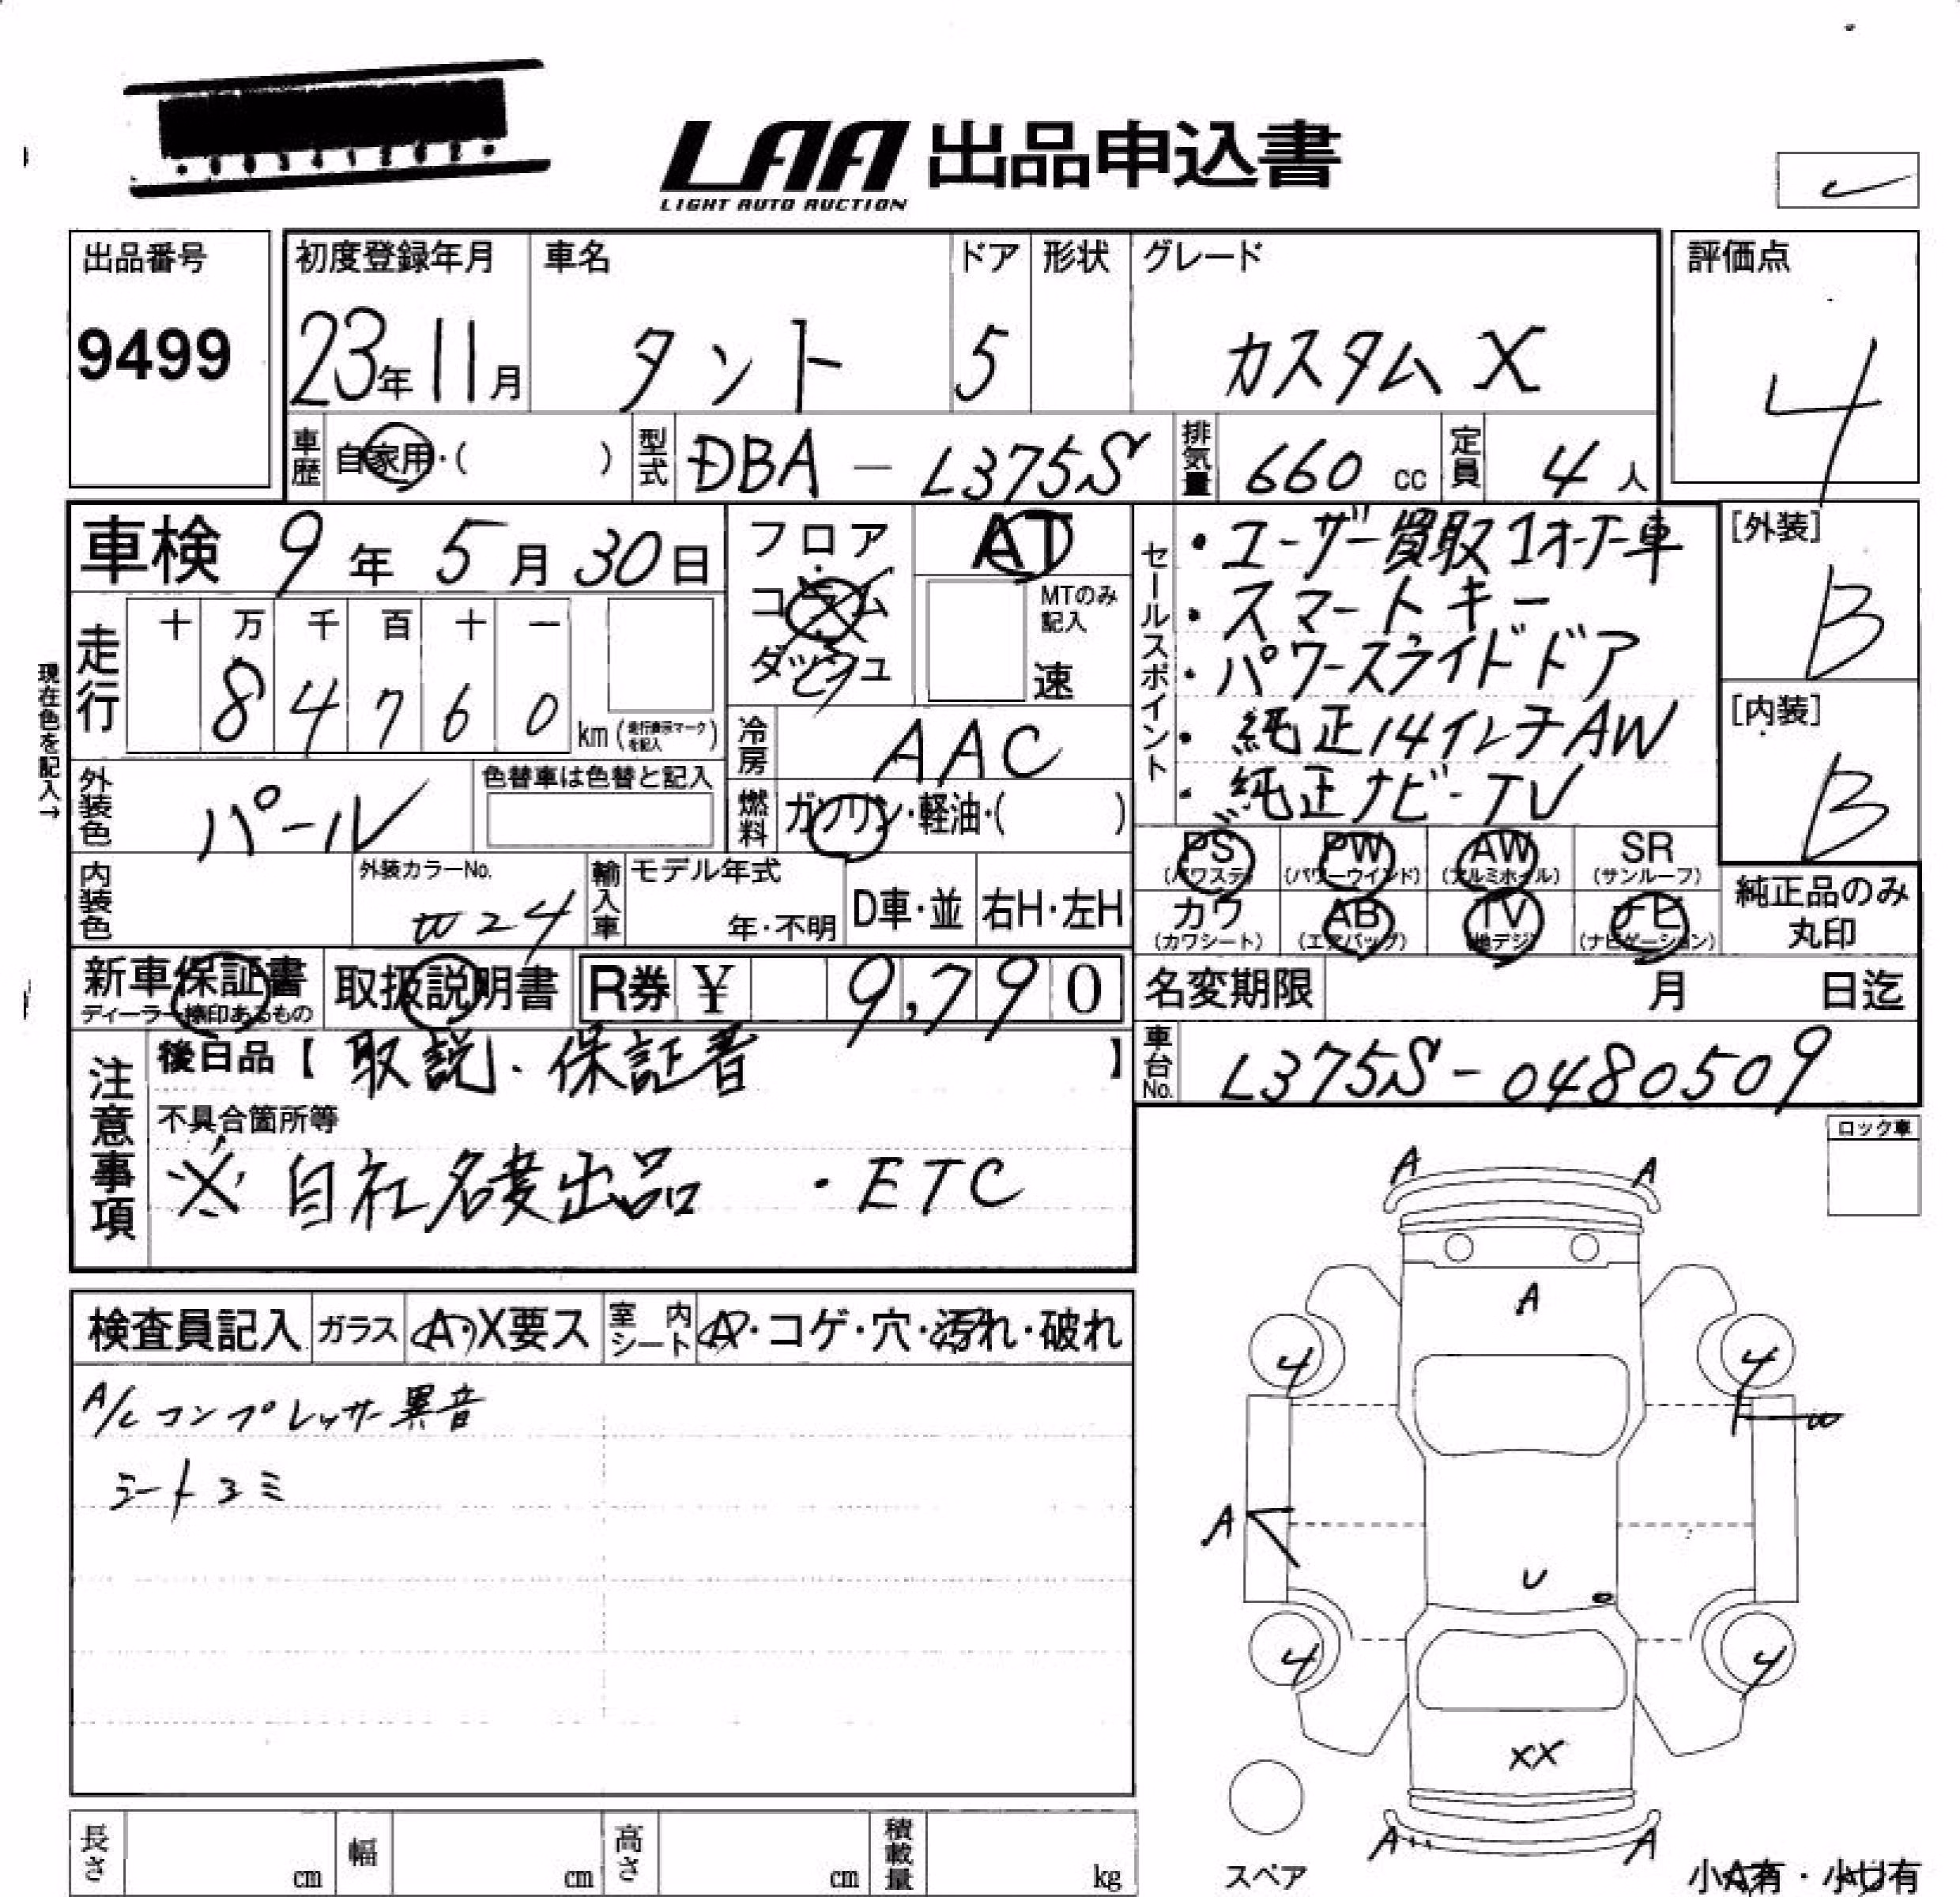 LAA 出品申込書
LIGHT AUTO AUCTION
出品番号
9499
初度登録年月
23年11月
車名
タント
ドア
5
形状
グレード
カスタム X
評価点
4
車歴 自家用・( )
型式 DBA - L375S
排気量 660 cc
定員 4 人
車検 9年5月30日
フロア・コラム・ダッシュ
AT
MTのみ記入
速
走行
十 万 千 百 十 一
8 4 7 6 0
km (走行表示マークを記入)
現在色を記入→
外装色 パール
色替車は色替と記入
冷房 AAC
燃料 ガソリン・軽油・( )
内装色
外装カラーNo.
W24
輸入車
モデル年式
年・不明
D車・並
右H・左H
セールスポイント
・ユーザー買取1オーナー車
・スマートキー
・パワースライドドア
・純正14インチAW
・純正ナビ-TV
[外装]
B
[内装]
B
PS (パワステ)
PW (パワーウインド)
AW (アルミホイル)
SR (サンルーフ)
カワ (カワシート)
AB (エアバッグ)
TV (地デジ)
ナビ (ナビゲーション)
純正品のみ
丸印
新車保証書
ディーラー捺印あるもの
取扱説明書
R券 ¥ 9,790
名変期限 月 日迄
車台No. L375S-0480509
注意事項
後日品【 取説・保証書 】
不具合箇所等
※ 自社名変出品 ・ETC
ロック車
検査員記入
ガラス A・X要ス
室内シート A・コゲ・穴・汚れ・破れ
A/Cコンプレッサー異音
シートヨミ
A A
A
4 4
W
A
U
4 4
XX
A A
スペア
小A有・小U有
長さ cm
幅 cm
高さ cm
積載量 kg